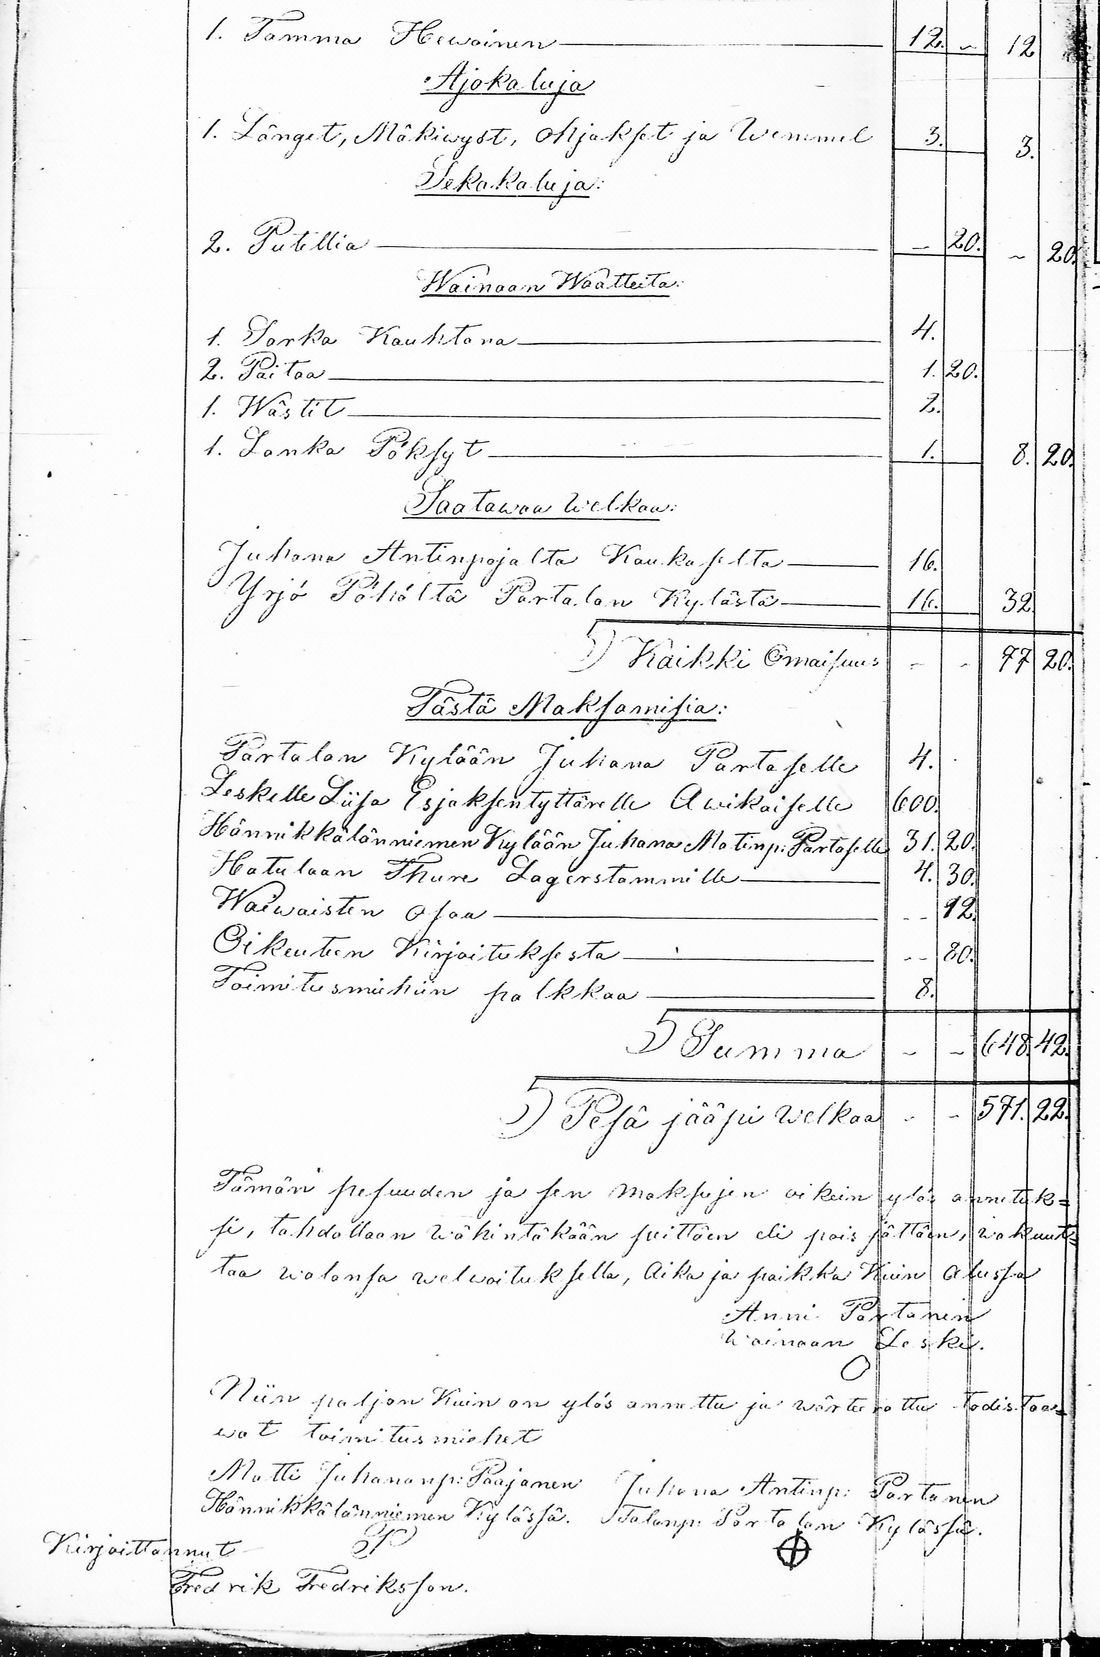 1. Tamma Hewoinen 12. – 12
Ajokaluja
1. Länget, Mäkiwyst, Ohjakset ja Wemmel 3. 3.
Sekakaluja:
2. Putellia – 20. – 20.
Wainaan Waatteita:
1. Sarka Kauhtana 4.
2. Paitaa 1. 20.
1. Wästit 2.
1. Lanka Pöksyt 1. 8. 20.
Saatawaa Welkaa:
Juhana Antinpojalta Kaukaselta 16.
Yrjö Pöhöltä Partalan Kylästä 16. 32
Kaikki Omaisuus – – 77 20.
Tästä Maksamisia:
Partalan Kylään Juhana Partaselle 4.
Leskelle Liisa Esjaksentyttärelle Awikaiselle 600.
Hännikkälänniemen Kylään Juhana Matinp: Partaselle 31. 20.
Hatulaan Thure Lagerstammille 4. 30.
Waewaisten osaa – – 12.
Oikeuteen Kirjoituksesta – – 80.
Toimitusmiehiin palkkaa 8.
Summa – – 648. 42.
Pesä jääpi Welkaa – – 571. 22.
Tämän pesuuden ja sen maksujen oikein ylös annetuk=
si, tahdollaan wähintäkään peittäen eli pois jättäen, wakuut=
taa walansa welwoituksella, Aika ja paikka Kuin Alussa
Anni Partanen
Wainaan Leski.
Niin paljon Kuin on ylös annettu ja wärteerattu todistaa=
wat toimitusmiehet
Matti Juhananp: Paajanen Juhana Antinp: Partanen
Hännikkälänniemen Kylässä. Talanp: Partalan Kylässä.
Kirjoittannut
Fredrik Fredriksson.